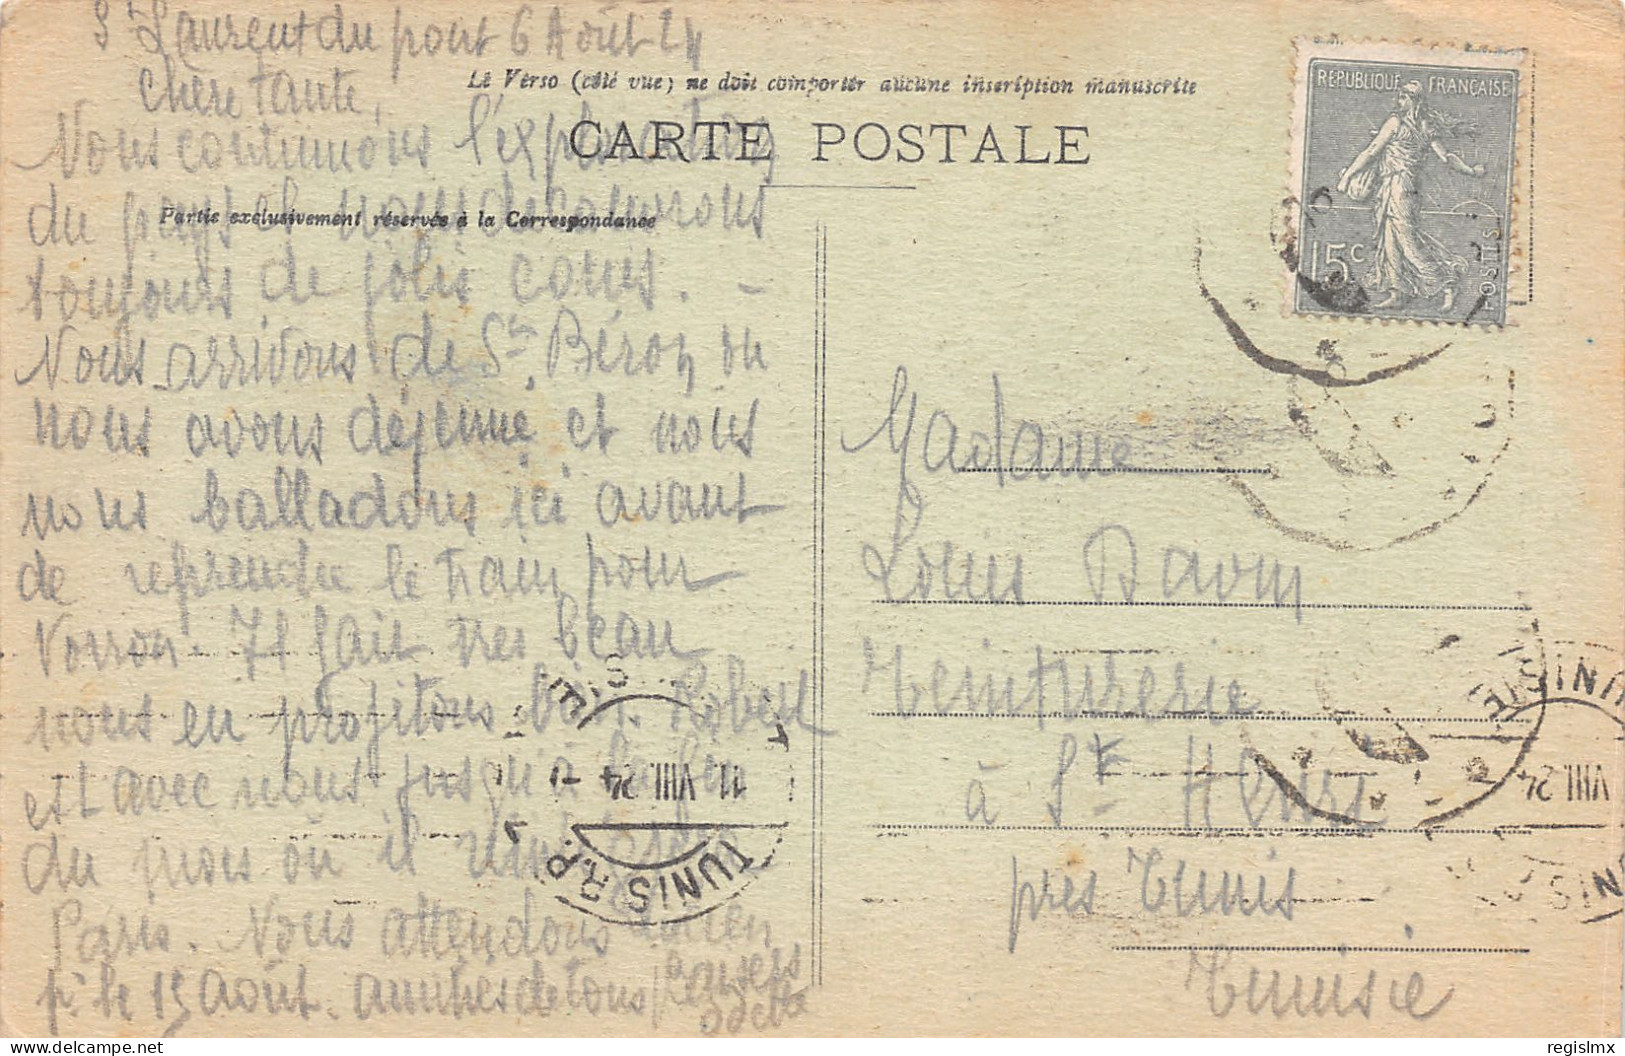 St Laurent du pont 6 Août 24
Chère tante,
Le Verso (côté vue) ne doit comporter aucune inscription manuscrite
CARTE POSTALE
Partie exclusivement réservée à la Correspondance
Nous continuons l'exploration
du pays et nous découvrons
toujours de jolis coins. –
Nous arrivons de St Béron où
nous avons déjeuné et nous
nous balladons ici avant
de reprendre le train pour
Voiron. Il fait très beau
nous en profitons bien. Robert
est avec nous jusqu'à la fin
du mois où il
Paris. Nous attendons
pr le 15 Août. amitiés de tous
REPUBLIQUE FRANÇAISE
15c
POSTES
Madame
Louis
Teinturerie
à St Henri
près Tunis
Tunisie
TUNIS R.P.
11 VIII 24
TUNISIE
VIII. 24
regislmx